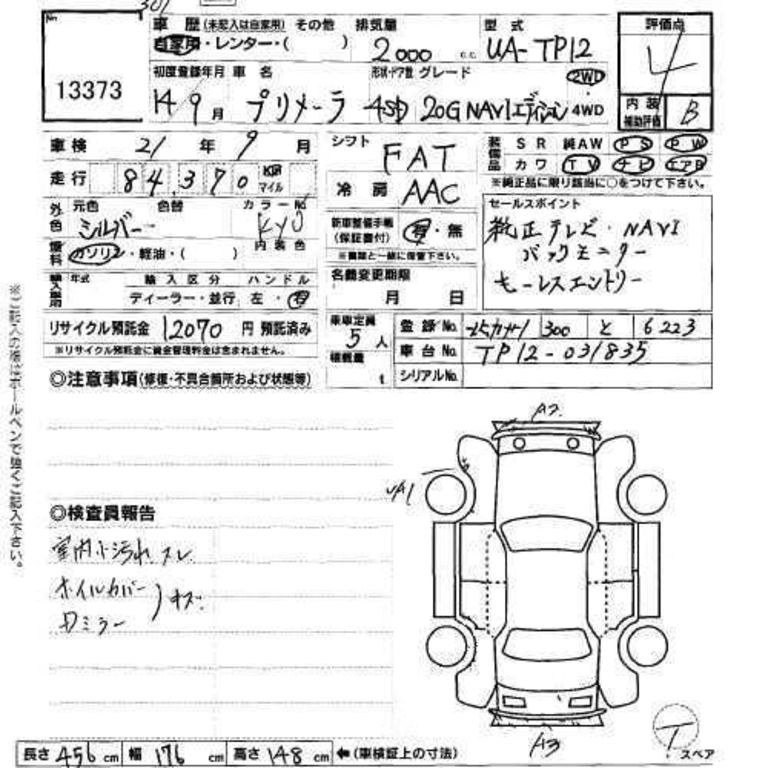 301
No
13373
車歴(未記入は自家用) その他
自家用・レンター・( )
排気量
2000 c.c.
型式
UA-TP12
評価点
4
初度登録年月
14 9月
車名
プリメーラ
形状・ドア数
4SD
グレード
20G NAVIエディション
2WD
4WD
内装
補助評価
B
車検 21年 9月
走行 84,370 KM マイル
外色 元色 シルバー 色替
カラーNo. KY0
内装色
燃料 ガソリン・軽油・( )
輸入車用 年式 輸入区分 ハンドル
ディーラー・並行 左・右
シフト FAT
冷房 AAC
新車整備手帳
(保証書付)
有・無
※書類と一緒に保管下さい。
名義変更期限
月 日
装備品 SR 純AW PS PW
カワ TV ナビ エアB
※純正品に限り該当に○をつけて下さい。
セールスポイント
純正テレビ・NAVI
バックモニター
キーレスエントリー
リサイクル預託金 12070 円 預託済み
※リサイクル預託金に資金管理料金は含まれません。
乗車定員 5人
積載量 t
登録No. 300 と 6223
車台No. TP12-031835
シリアルNo.
◎注意事項(修復・不具合箇所および状態等)
◎検査員報告
室内小汚れ、スレ
ホイルカバー
Dミラー
)キズ
※ご記入の際はボールペンで強くご記入下さい。
A2
A1
A3
T
スペア
長さ 456 cm 幅 176 cm 高さ 148 cm ←(車検証上の寸法)